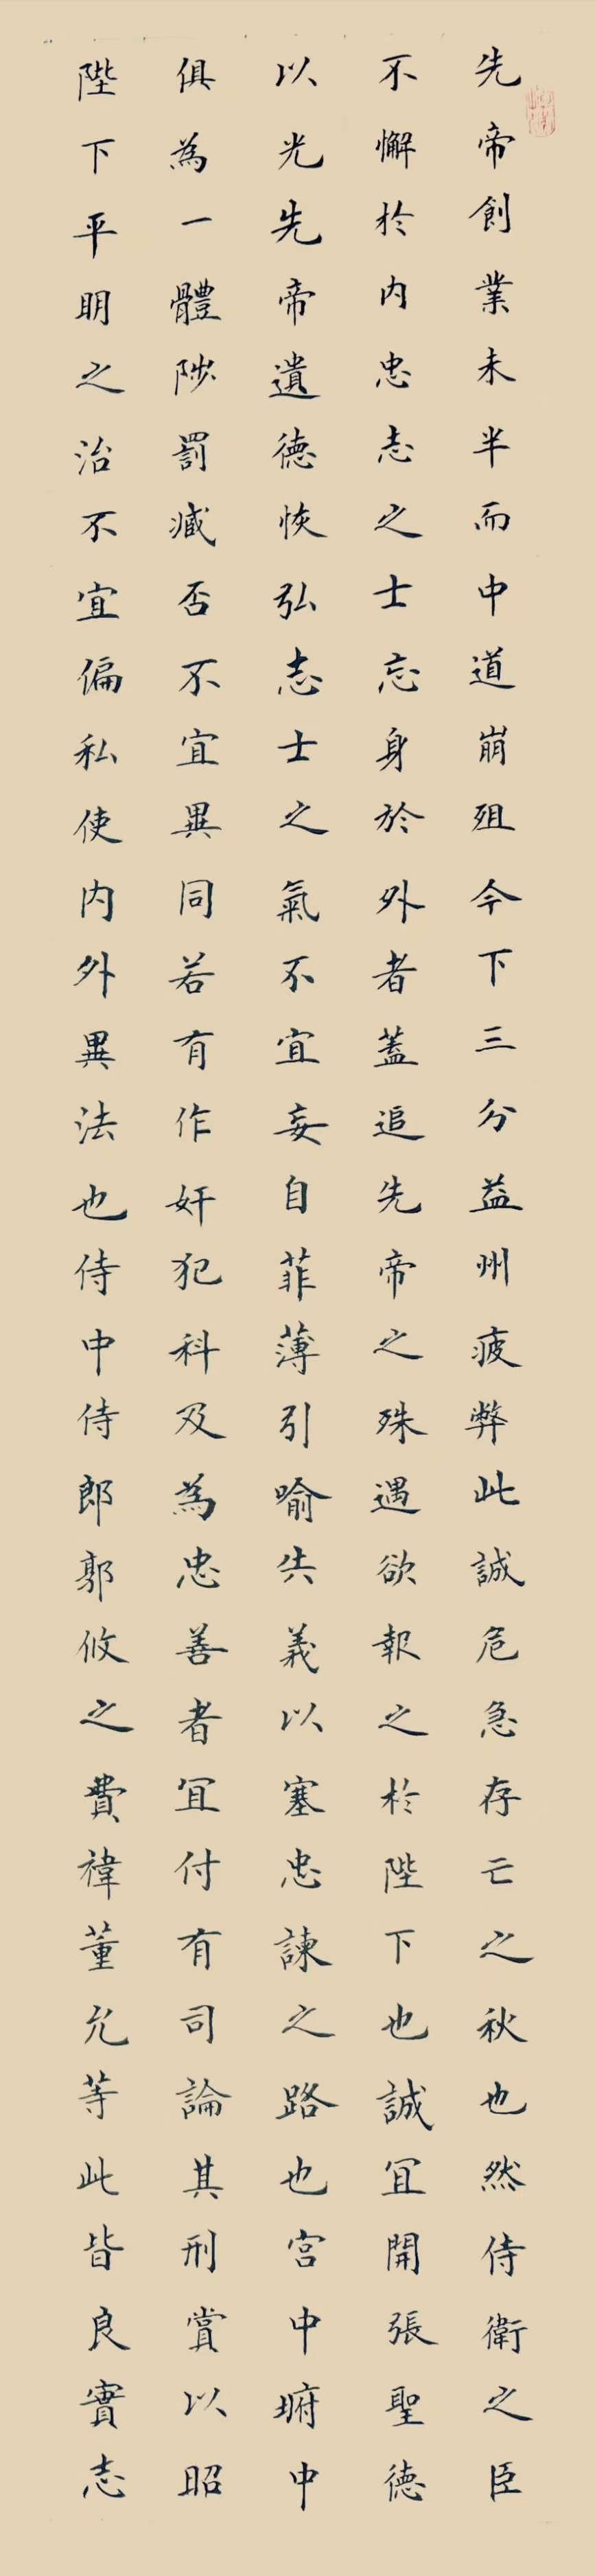 先帝創業未半而中道崩殂今下三分益州疲弊此誠危急存亡之秋也然侍衛之臣
不懈於内忠志之士忘身於外者蓋追先帝之殊遇欲報之於陛下也誠宜開張聖德
以光先帝遺德恢弘志士之氣不宜妄自菲薄引喻失義以塞忠諫之路也宮中府中
俱為一體陟罰臧否不宜異同若有作奸犯科及為忠善者宜付有司論其刑賞以昭
陛下平明之治不宜偏私使内外異法也侍中侍郎郭攸之費禕董允等此皆良實志